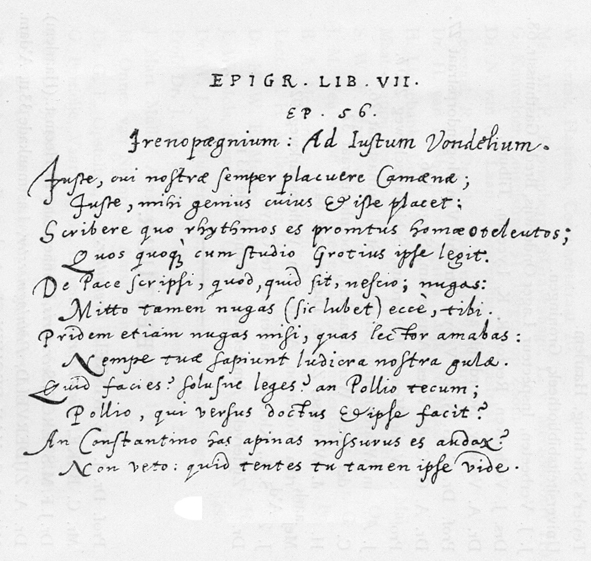 EPIGR. LIB. VII.
EP. 56.
Irenopægnium: Ad Iustum Vondelium.
Iuste, cui nostræ semper placuere Camænæ;
Iuste, mihi genius cuius & iste placet:
Scribere quo rhythmos es promtus homœoteleutos;
Quos quoq; cum studio Grotius ipse legit.
De Pace scripsi, quod, quid sit, nescio; nugas:
Mitto tamen nugas (sic lubet) eccè, tibi.
Pridem etiam nugas misi, quas lector amabas:
Nempe tuæ sapiunt ludicra nostra gulæ.
Quid facies? solusne leges? an Pollio tecum;
Pollio, qui versus doctus & ipse facit?
An Constantino has apinas missurus es audax?
Non veto: quid tentes tu tamen ipse vide.